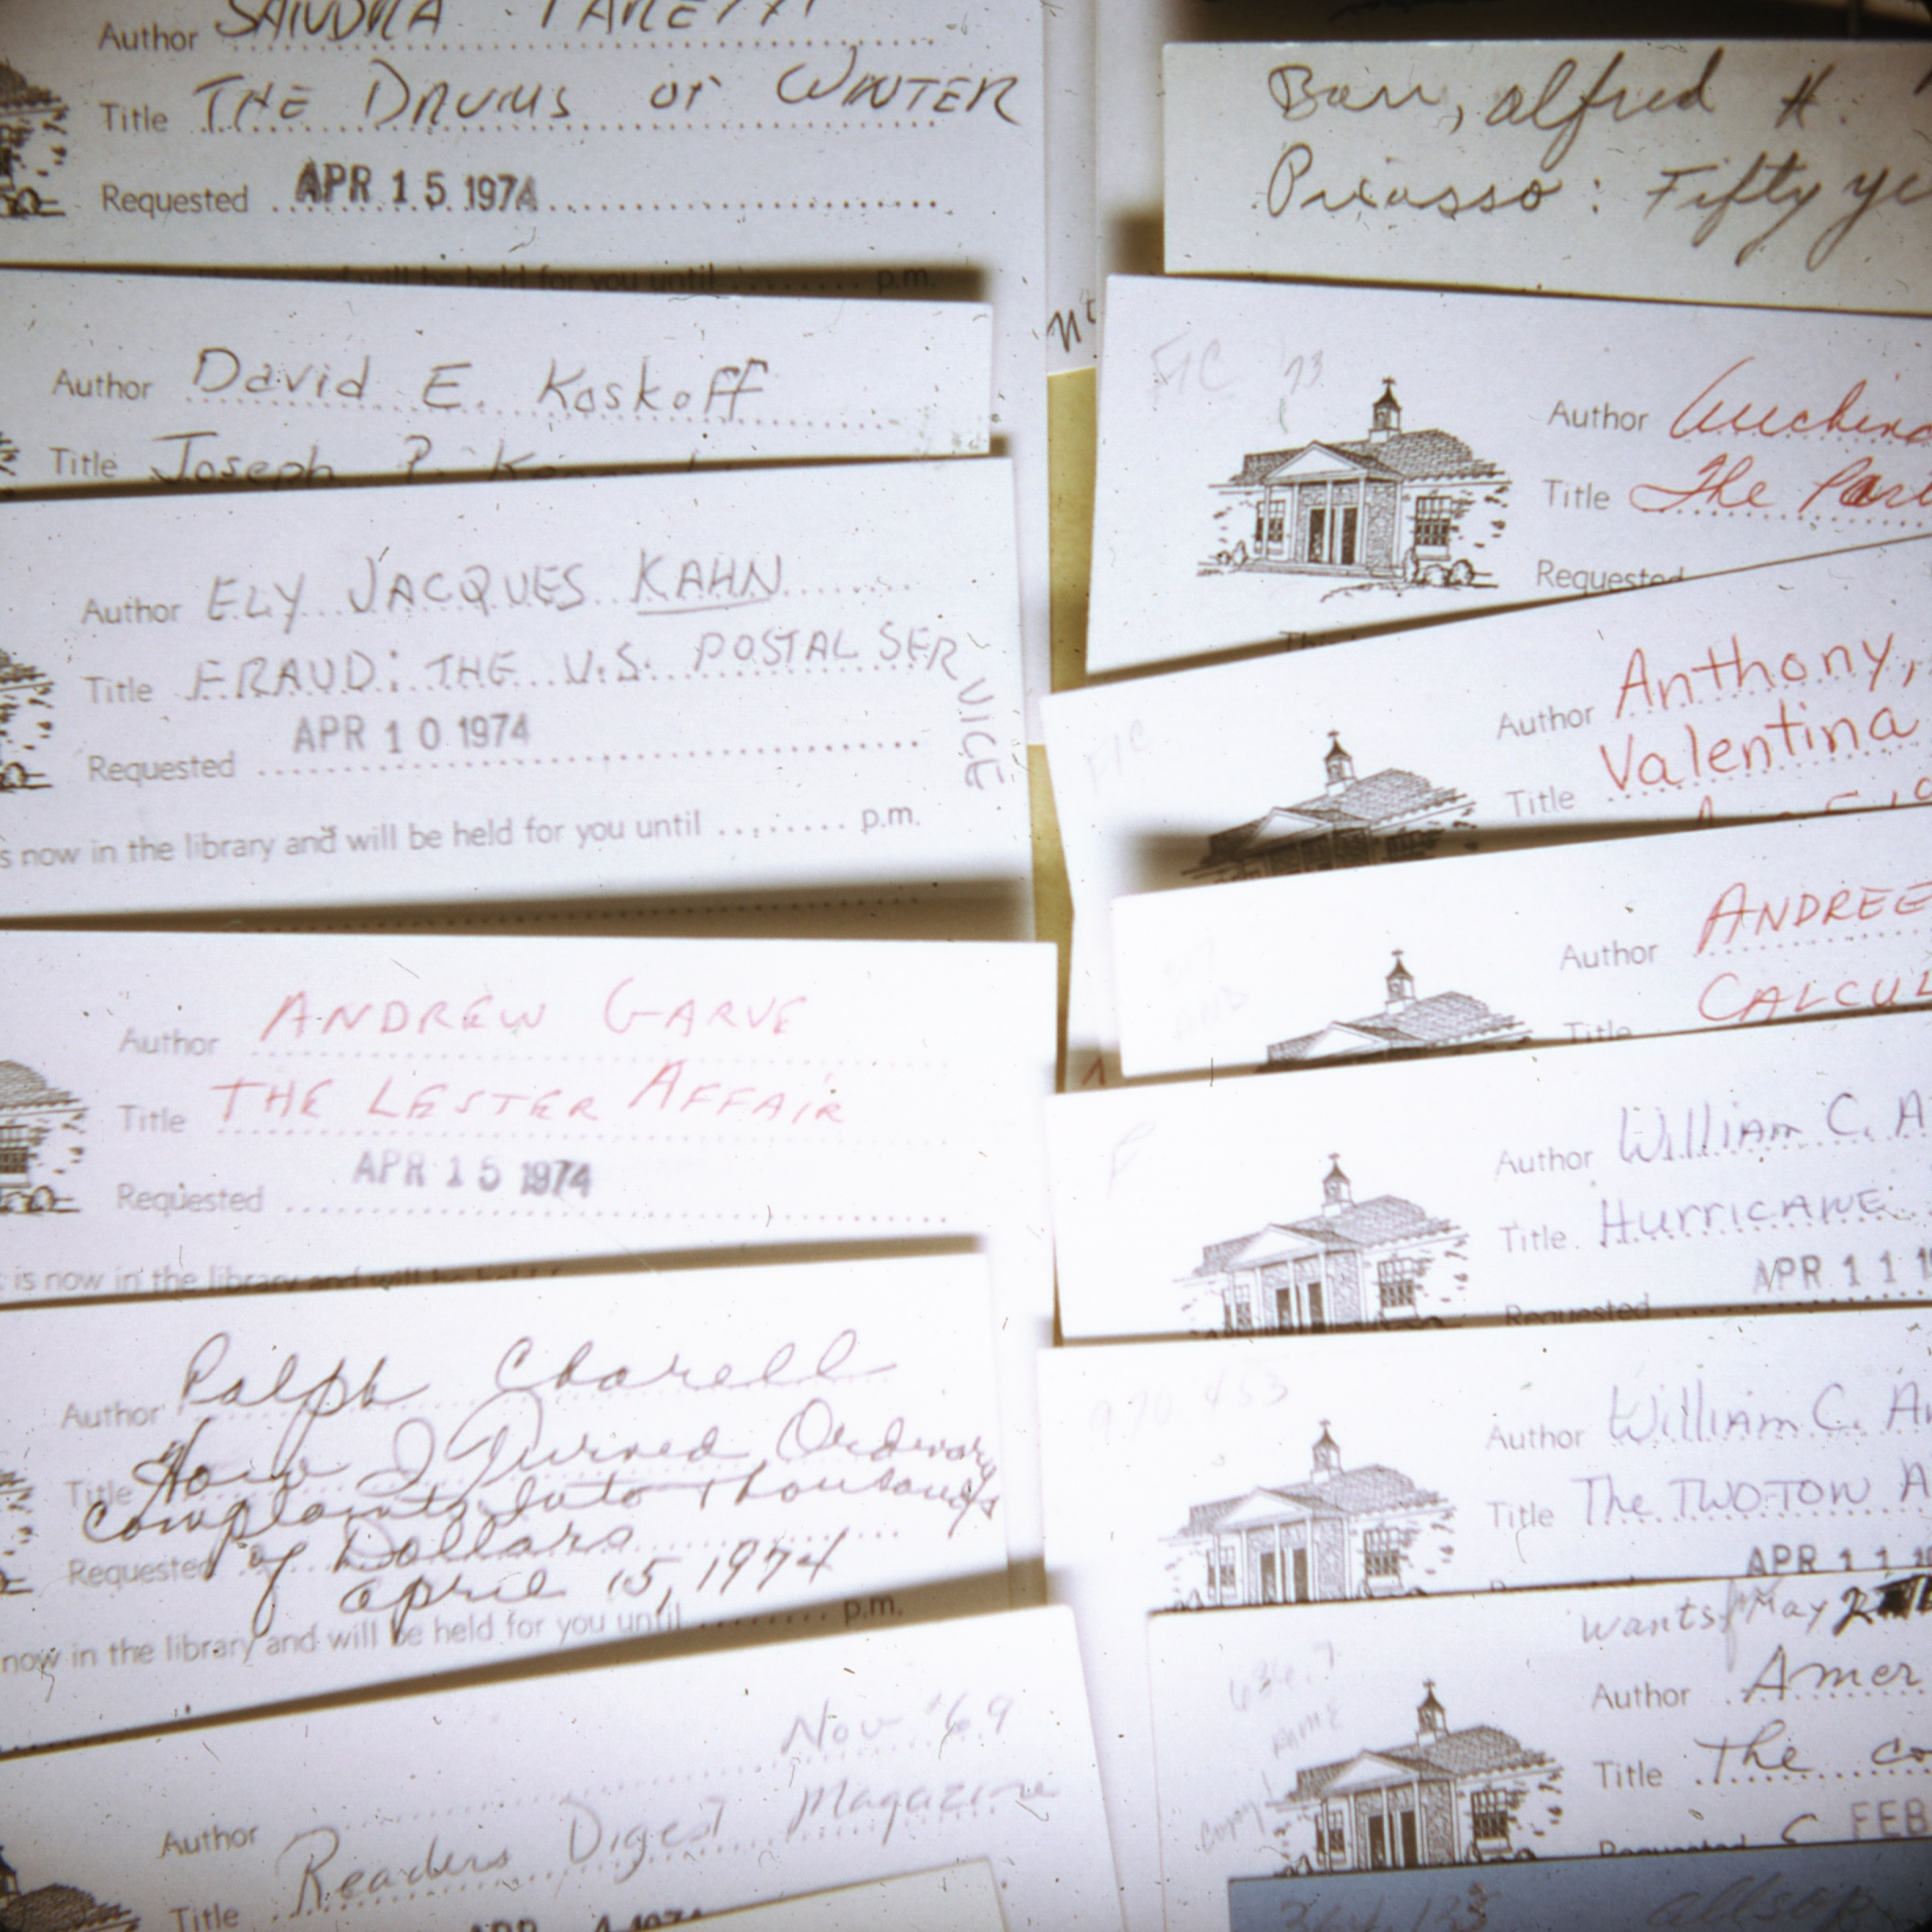 Author SANDRA PARETTI
Title THE DRUMS OF WINTER
Requested APR 15 1974
will be held for you until ........ p.m.
Author David E. Koskoff
Title Joseph P.
Author ELY JACQUES KAHN
Title FRAUD: THE U.S. POSTAL SERVICE
Requested APR 10 1974
s now in the library and will be held for you until ........ p.m.
Author ANDREW GARVE
Title THE LESTER AFFAIR
Requested APR 15 1974
is now in the library and will be held
Author Ralph Charell
Title How I Turned Ordinary
Complaints Into Thousands
of Dollars
Requested April 15, 1974
now in the library and will be held for you until ........ p.m.
Nov '69
Author Readers Digest Magazine
Title
APR 4 1974
Barr, Alfred H.
Picasso: Fifty ye
FIC 73
Author Auchinc
Title The Part
Requested
FIC
Author Anthony,
Valentina
Title
Author ANDREE
CALCUL
Title
F
Author William C. A
Title Hurricane
APR 11 1
Requested
970.453
Author William C. An
Title The TWO-TON A
APR 11 19
Wants May
634.9
AME
Copy 1
Author Amer
Title The co
Requested FEB
364.133 allsop